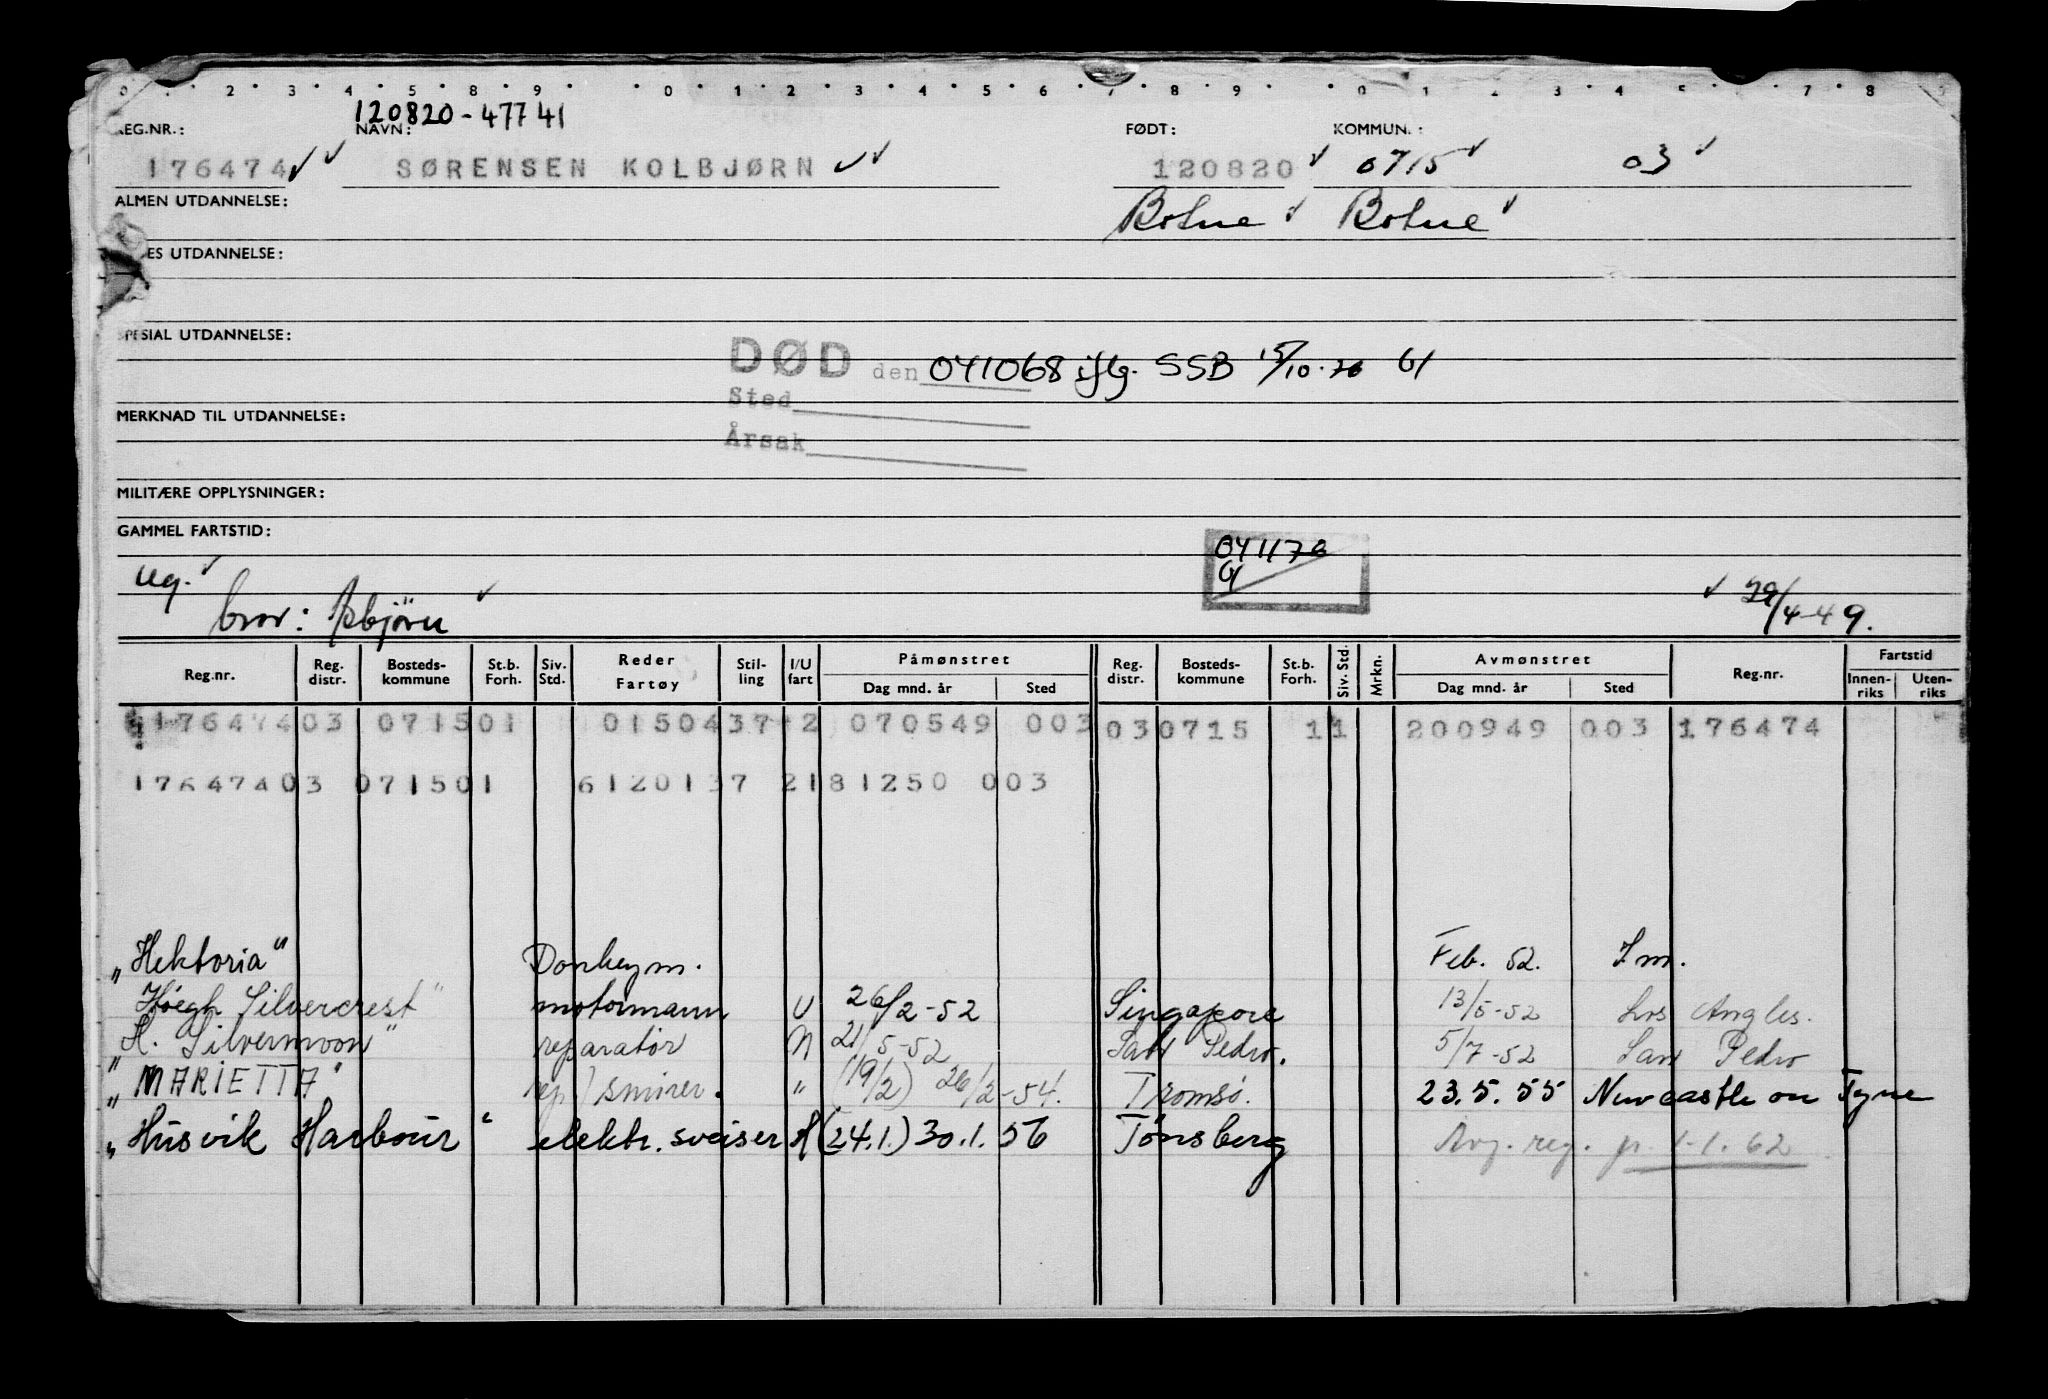 0 2 3 4 5 8 9 0 1 2 3 4 5 6 7 8 9 0 1 2 3 4 5 6 7 8
120820-47741
REG.NR.: NAVN: FØDT: KOMMUN.:
176474 SØRENSEN KOLBJØRN 120820 0715 03
ALMEN UTDANNELSE: Botne Botne
UTDANNELSE:
SPESIAL UTDANNELSE:
DØD den 041068 iflg. SSB 15/10-70
Sted
MERKNAD TIL UTDANNELSE:
Årsak
MILITÆRE OPPLYSNINGER:
GAMMEL FARTSTID:
041170
ug.
bror: Asbjörn 29/4-49.
Reg.nr. Reg. distr. Bosteds-kommune St.b. Forh. Siv. Std. Reder Fartøy Stil-ling I/U fart Påmønstret Dag mnd. år Sted Reg. distr. Bosteds-kommune St.b. Forh. Siv. Std. Mrkn. Avmønstret Dag mnd. år Sted Reg.nr. Fartstid Innen-riks Uten-riks
176474 03 0715 01 0150437 2 070549 003 03 0715 11 200949 003 176474
176474 03 0715 01 6120137 2 181250 003
„Hektoria" Donkeym. Feb. 52. Im.
„Höegh Silvercrest" motormann U 26/2-52 Singapore 13/5-52 Los Angles.
„H. Silvermoon" reparatör N 21/5-52 San Pedro. 5/7-52 San Pedro
„MARIETTA" rep/smörer. " (19/2) 26/2-54. Tromsö. 23.5.55 Newcastle on Tyne
„Husvik Harbour" elektr. sveiser H (24.1.) 30.1.56 Tønsberg Avg. reg. pr. 1-1.62